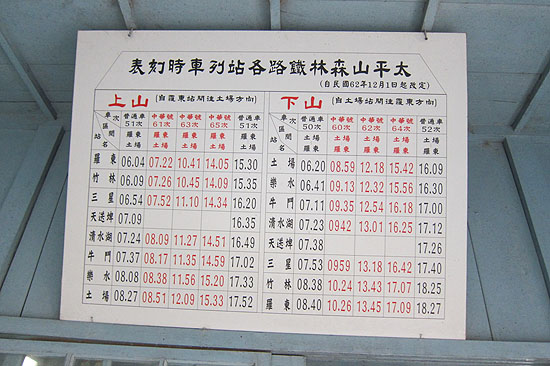 太平山森林鐵路各站列車時刻表
(自民國62年12月1日起改定)
上山 (自羅東站開往土場方向)
車次 普通車51次 中華號61次 中華號63次 中華號65次 普通車51次
站名 區間 羅東 土場 羅東 土場 羅東 土場 羅東 土場 羅東 土場
羅東 06.04 07.22 10.41 14.05 15.30
竹林 06.09 07.26 10.45 14.09 15.35
三星 06.54 07.52 11.10 14.34 16.20
天送埤 07.09 16.35
清水湖 07.24 08.09 11.27 14.51 16.49
牛鬥 07.37 08.17 11.35 14.59 17.02
樂水 08.08 08.38 11.56 15.20 17.33
土場 08.27 08.51 12.09 15.33 17.52
下山 (自土場站開往羅東方向)
車次 普通車50次 中華號60次 中華號62次 中華號64次 普通車52次
站名 區間 土場 羅東 土場 羅東 土場 羅東 土場 羅東 土場 羅東
土場 06.20 08.59 12.18 15.42 16.09
樂水 06.41 09.13 12.32 15.56 16.30
牛鬥 07.11 09.35 12.54 16.18 17.00
清水湖 07.23 0942 13.01 16.25 17.12
天送埤 07.38 17.26
三星 07.53 0959 13.18 16.42 17.40
竹林 08.38 10.24 13.43 17.07 18.25
羅東 08.40 10.26 13.45 17.09 18.27